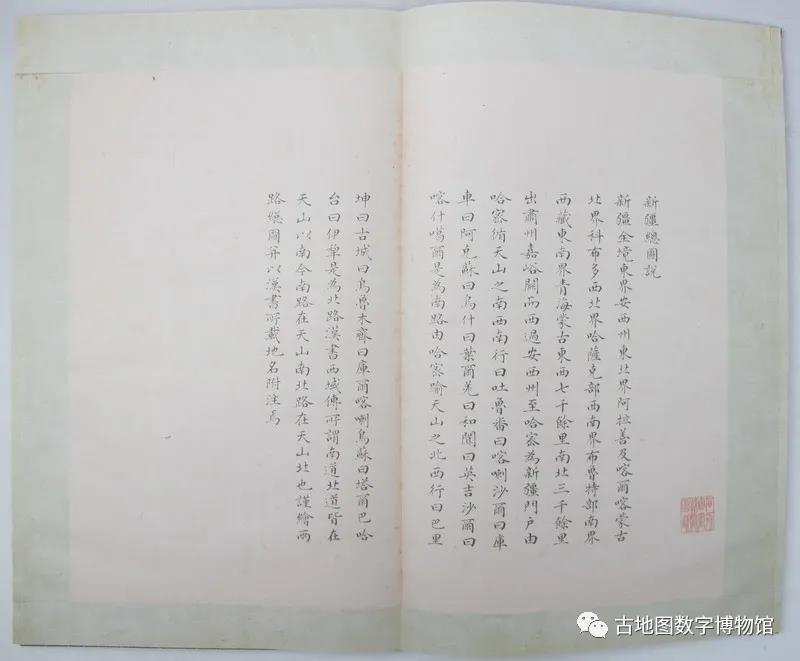 新疆總圖說
新疆全境東界安西州東北界阿拉善及喀爾喀蒙古
北界科布多西北界哈薩克部西南界布魯特部南界
西藏東南界青海蒙古東西七千餘里南北三千餘里
出肅州嘉峪關而西過安西州至哈密為新疆門戶由
哈密循天山之南西南行曰吐魯番曰喀喇沙爾曰庫
車曰阿克蘇曰烏什曰葉爾羌曰和闐曰英吉沙爾曰
喀什噶爾是為南路由哈密踰天山之北西行曰巴里
坤曰古城曰烏魯木齊曰庫爾喀喇烏蘇曰塔爾巴哈
台曰伊犂是為北路漢書西域傳所謂南道北道皆在
天山以南今南路在天山南北路在天山北也謹繪兩
路總圖并以漢書所載地名附注焉
古地图数字博物馆